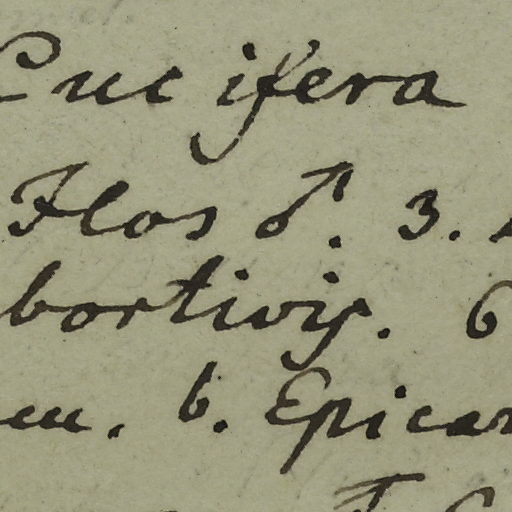 Cucifera
Flos ♂. 3.
bortivis. 6
m. 6. Epicar